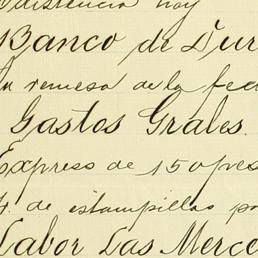 Existencia hoy
Banco de Dur
Su remesa de la fec
Gastos Grales.
Expreso de 150 pes
de estampillas po
Labor Las Merce